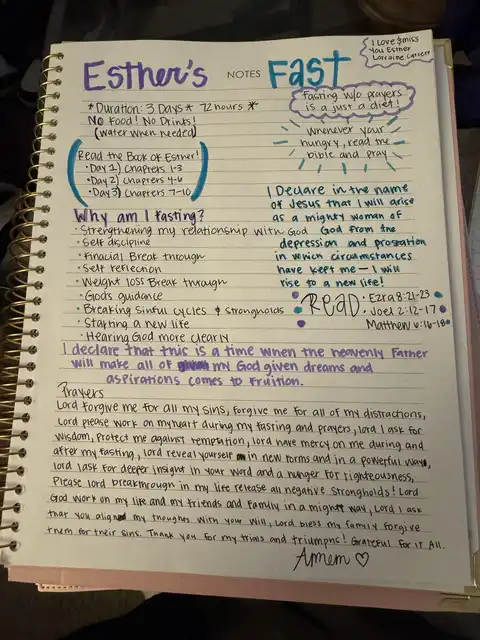 I Love & miss
You Esther
Lorraine
Esther's NOTES Fast
*Duration: 3 Days * 72 hours *
No Food! No Drinks!
(water when needed)
Fasting w/o prayers
is a just a diet!
whenever your
hungry, read the
bible and pray
Read the Book of Esther!
• Day 1) Chapters 1-3
• Day 2) Chapters 4-6
• Day 3) Chapters 7-10
I Declare in the name
of Jesus that I will arise
as a mighty woman of
God from the
depression and prostration
in which circumstances
have kept me - I will
rise to a new life!
Why am I fasting?
• Strengthening my relationship with God
• Self discipline
• Finacial Break through
• Self reflection
• Weight loss Break through
• Gods guidance
• Breaking sinful cycles & strongholds
• Starting a new life
• Hearing God more clearly
READ: • Ezra 8:21-23
• Joel 2:12-17
Matthew 6:16-18
I declare that this is a time when the heavenly Father
will make all of my God given dreams and
aspirations comes to fruition.
Prayers
Lord forgive me for all my sins, forgive me for all of my distractions,
Lord please work on my heart during my fasting and prayers, lord I ask for
wisdom, protect me against temptation, lord have mercy on me during and
after my fasting, lord reveal yourself in new forms and in a powerful way,
lord I ask for deeper insight in your word and a hunger for righteousness,
Please lord breakthrough in my life release all negative strongholds! Lord
God work on my life and my friends and family in a mighty way, Lord I ask
that you aligned my thoughts with your will, Lord bless my family forgive
them for their sins. Thank you for my trials and triumphs! Grateful for it All.
Amem ♡